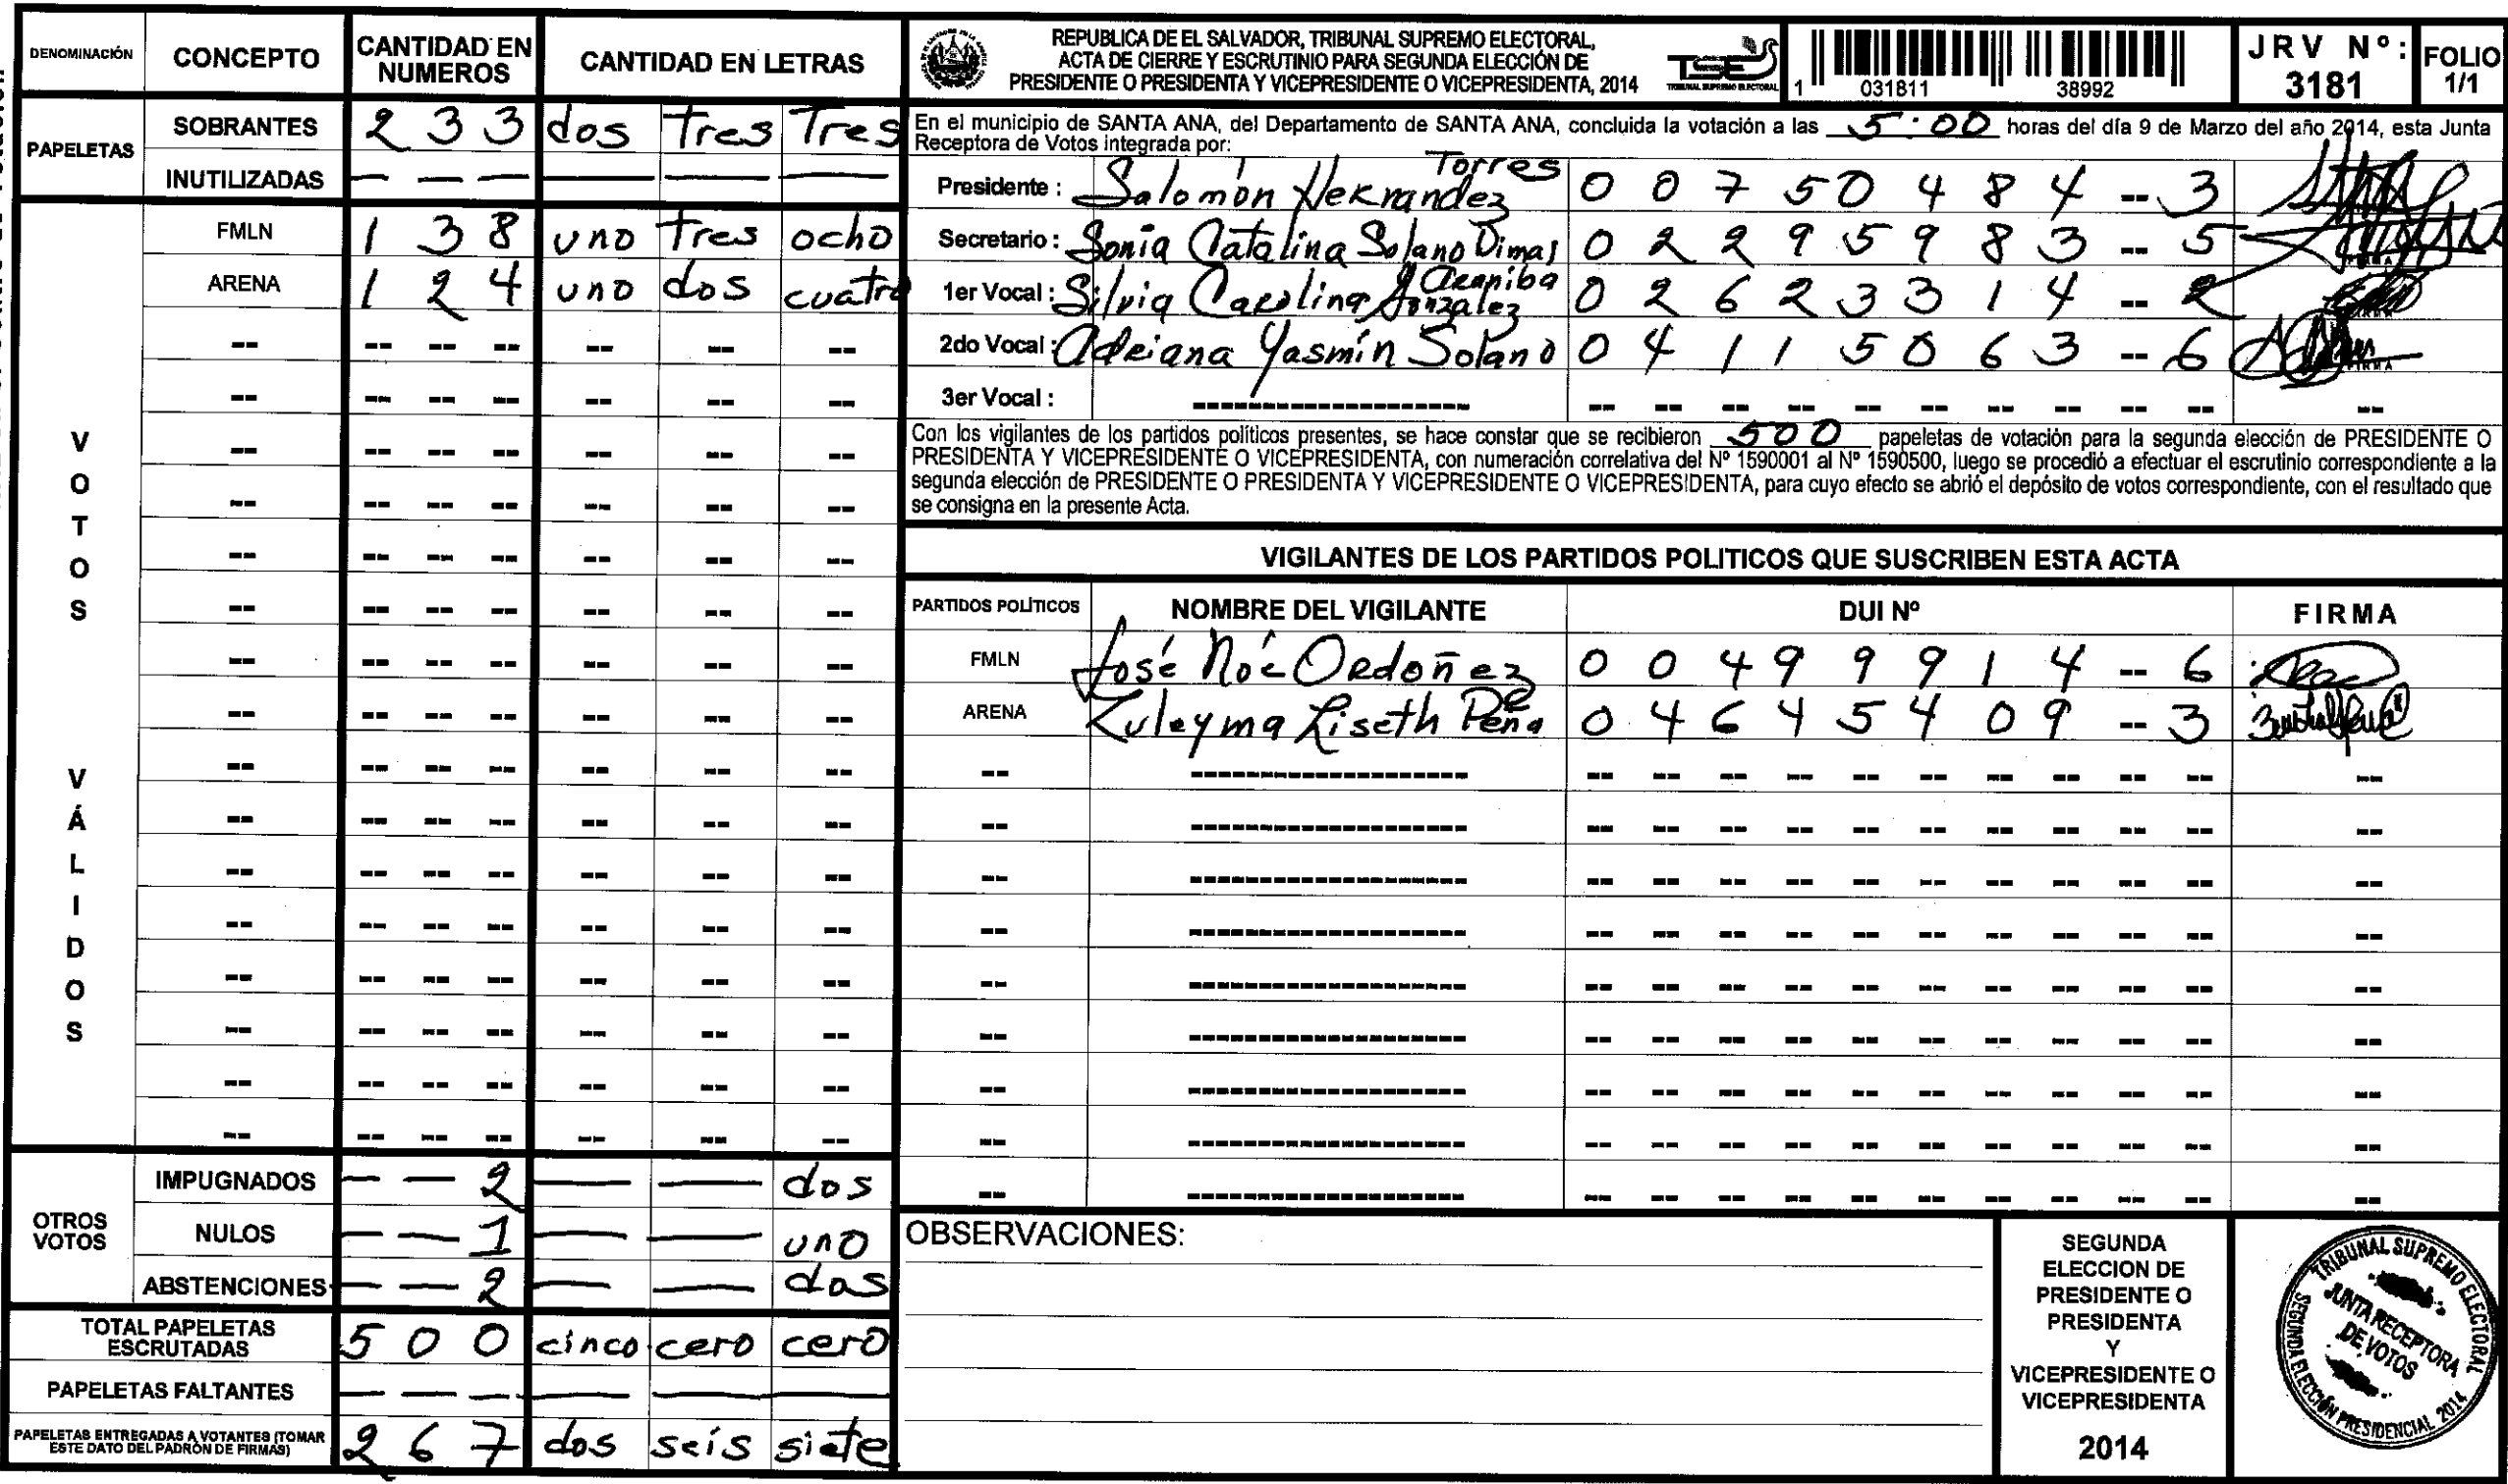 DENOMINACIÓN CONCEPTO CANTIDAD EN NUMEROS CANTIDAD EN LETRAS
PAPELETAS
SOBRANTES 2 3 3 dos tres Tres
INUTILIZADAS — — — — — —
VOTOS VÁLIDOS
FMLN 1 3 8 uno tres ocho
ARENA 1 2 4 uno dos cuatro
OTROS VOTOS
IMPUGNADOS — — 2 — — dos
NULOS — — 1 — — uno
ABSTENCIONES — — 2 — — dos
TOTAL PAPELETAS ESCRUTADAS 5 0 0 cinco cero cero
PAPELETAS FALTANTES — — — — — —
PAPELETAS ENTREGADAS A VOTANTES (TOMAR ESTE DATO DEL PADRÓN DE FIRMAS) 2 6 7 dos seis siete
REPUBLICA DE EL SALVADOR, TRIBUNAL SUPREMO ELECTORAL,
ACTA DE CIERRE Y ESCRUTINIO PARA SEGUNDA ELECCIÓN DE
PRESIDENTE O PRESIDENTA Y VICEPRESIDENTE O VICEPRESIDENTA, 2014
TSE
TRIBUNAL SUPREMO ELECTORAL
1 031811 38992
JRV Nº: 3181
FOLIO 1/1
En el municipio de SANTA ANA, del Departamento de SANTA ANA, concluida la votación a las 5:00 horas del día 9 de Marzo del año 2014, esta Junta
Receptora de Votos integrada por:
Presidente : Salomón Hernandez Torres 0 0 7 5 0 4 8 4 -- 3
Secretario : Sonia Catalina Solano Dimas 0 2 2 9 5 9 8 3 -- 5
1er Vocal : Silvia Carolina Gonzalez 0 2 6 2 3 3 1 4 -- 2
2do Vocal : Adriana Yasmín Solano 0 4 1 1 5 0 6 3 -- 6
3er Vocal :
Con los vigilantes de los partidos políticos presentes, se hace constar que se recibieron 500 papeletas de votación para la segunda elección de PRESIDENTE O
PRESIDENTA Y VICEPRESIDENTE O VICEPRESIDENTA, con numeración correlativa del Nº 1590001 al Nº 1590500, luego se procedió a efectuar el escrutinio correspondiente a la
segunda elección de PRESIDENTE O PRESIDENTA Y VICEPRESIDENTE O VICEPRESIDENTA, para cuyo efecto se abrió el depósito de votos correspondiente, con el resultado que
se consigna en la presente Acta.
VIGILANTES DE LOS PARTIDOS POLITICOS QUE SUSCRIBEN ESTA ACTA
PARTIDOS POLÍTICOS NOMBRE DEL VIGILANTE DUI Nº FIRMA
FMLN José Noé Ordoñez 0 0 4 9 9 9 1 4 -- 6
ARENA Zuleyma Liseth Peña 0 4 6 4 5 4 0 9 -- 3
OBSERVACIONES:
SEGUNDA
ELECCION DE
PRESIDENTE O
PRESIDENTA
Y
VICEPRESIDENTE O
VICEPRESIDENTA
2014
TRIBUNAL SUPREMO ELECTORAL
JUNTA RECEPTORA
DE VOTOS
SEGUNDA ELECCIÓN PRESIDENCIAL 2014